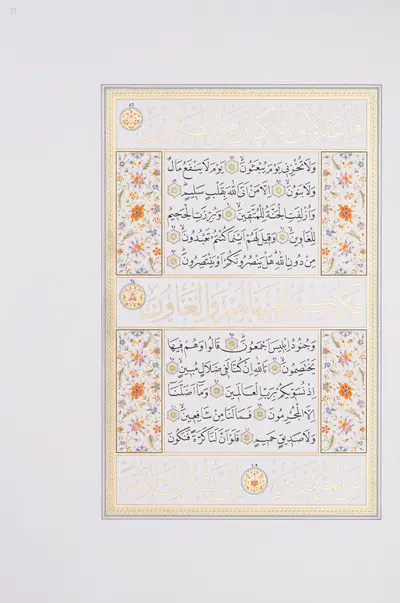 وَاغْفِرْ لِأَبِي إِنَّهُ كَانَ مِنَ الضَّالِّينَ ٨٦
وَلَا تُخْزِنِي يَوْمَ يُبْعَثُونَ يَوْمَ لَا يَنْفَعُ مَالٌ
وَلَا بَنُونَ اِلَّا مَنْ اَتَى اللّٰهَ بِقَلْبٍ سَلِيمٍ
وَاُزْلِفَتِ الْجَنَّةُ لِلْمُتَّقِينَ وَبُرِّزَتِ الْجَحِيمُ
لِلْغَاوِينَ وَقِيلَ لَهُمْ اَيْنَمَا كُنْتُمْ تَعْبُدُونَ
مِنْ دُونِ اللّٰهِ هَلْ يَنْصُرُونَكُمْ اَوْ يَنْتَصِرُونَ
٩٤ فَكُبْكِبُوا فِيهَا هُمْ وَالْغَاوُنَ
وَجُنُودُ اِبْلِيسَ اَجْمَعُونَ قَالُوا وَهُمْ فِيهَا
يَخْتَصِمُونَ تَاللّٰهِ اِنْ كُنَّا لَفِي ضَلَالٍ مُبِينٍ
اِذْ نُسَوِّيكُمْ بِرَبِّ الْعَالَمِينَ وَمَا اَضَلَّنَا
اِلَّا الْمُجْرِمُونَ فَمَا لَنَا مِنْ شَافِعِينَ
وَلَا صَدِيقٍ حَمِيمٍ فَلَوْ اَنَّ لَنَا كَرَّةً فَنَكُونَ
مِنَ الْمُؤْمِنِينَ ١٠٢ اِنَّ فِي ذٰلِكَ لَاٰيَةً